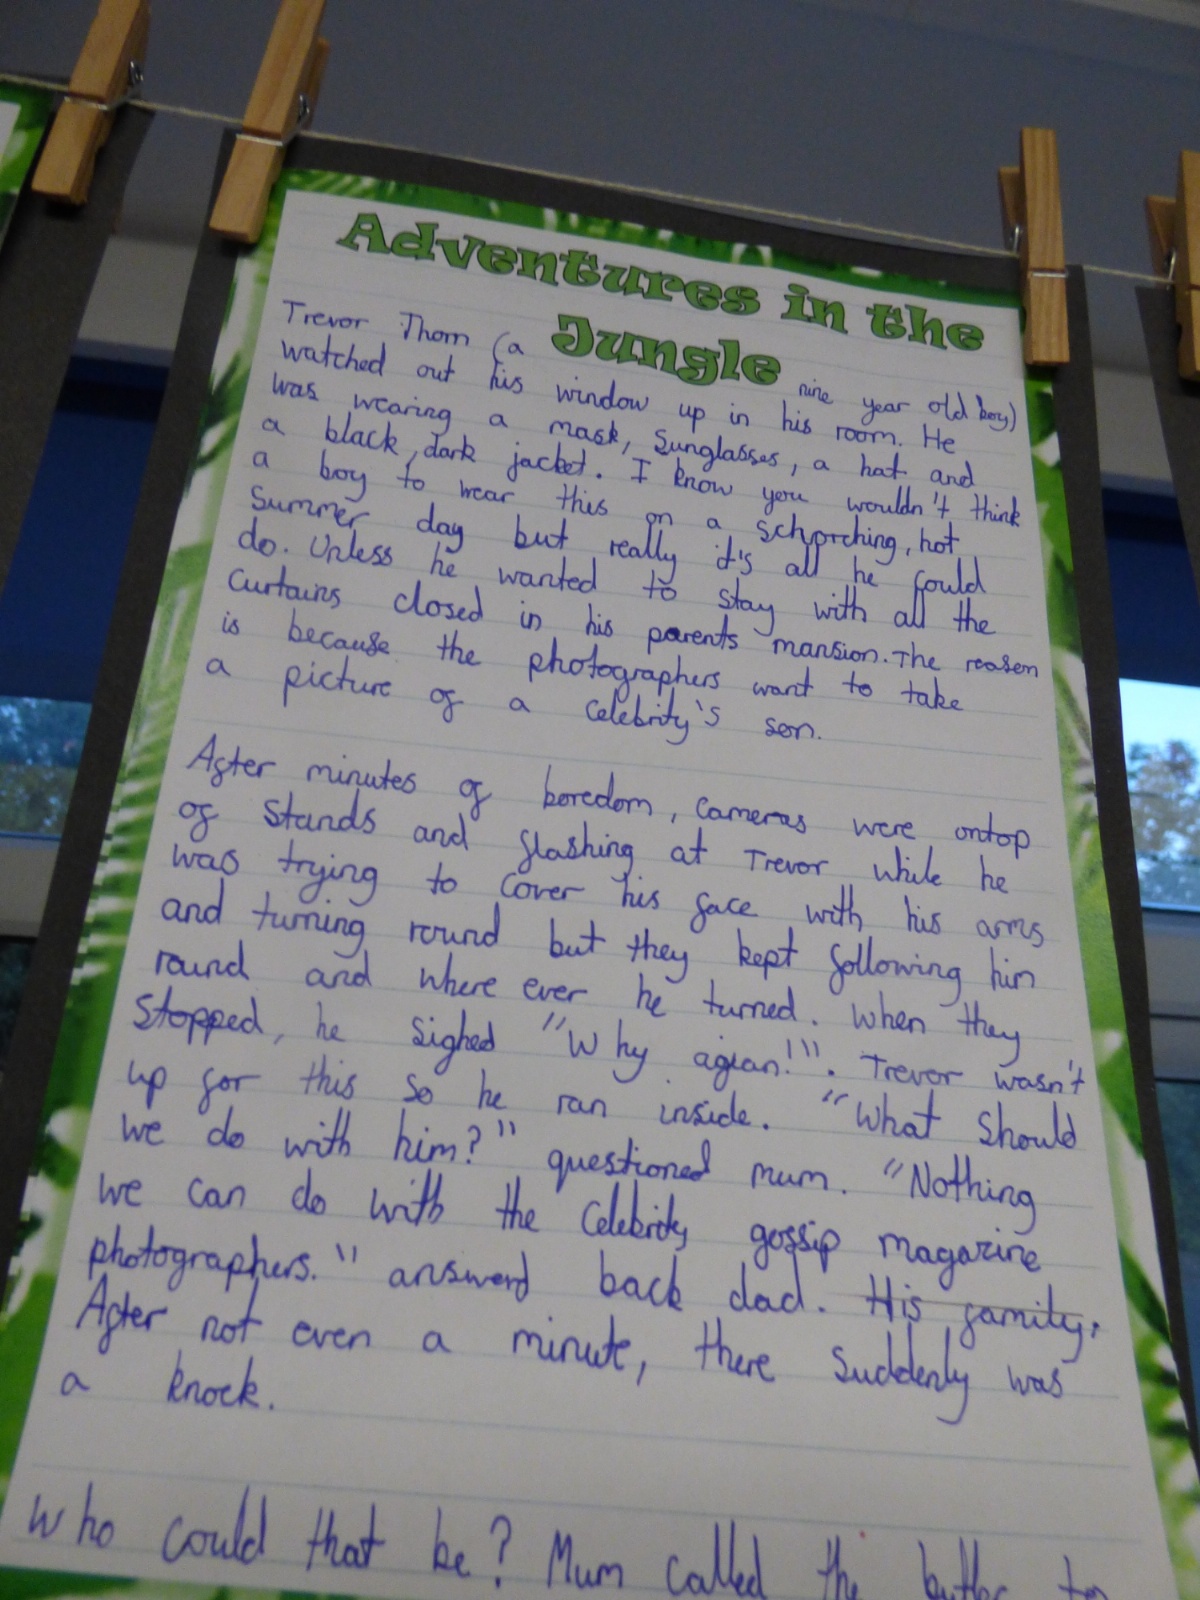 Adventures in the
Jungle
Trevor Thorn (a nine year old boy)
watched out his window up in his room. He
was wearing a mask, sunglasses, a hat and
a black, dark jacket. I know you wouldn't think
a boy to wear this on a schorching, hot
summer day but really it's all he could
do. Unless he wanted to stay with all the
curtains closed in his parents mansion. The reason
is because the photographers want to take
a picture of a celebrity's son.
After minutes of boredom, cameras were ontop
of stands and flashing at Trevor while he
was trying to cover his face with his arms
and turning round but they kept following him
round and where ever he turned. When they
stopped, he sighed "Why agian!!". Trevor wasn't
up for this so he ran inside. "What should
we do with him?" questioned mum. "Nothing
we can do with the celebrity gossip magazine
photographers." answerd back dad. His family,
After not even a minute, there suddenly was
a knock.
Who could that be? Mum called the butler to